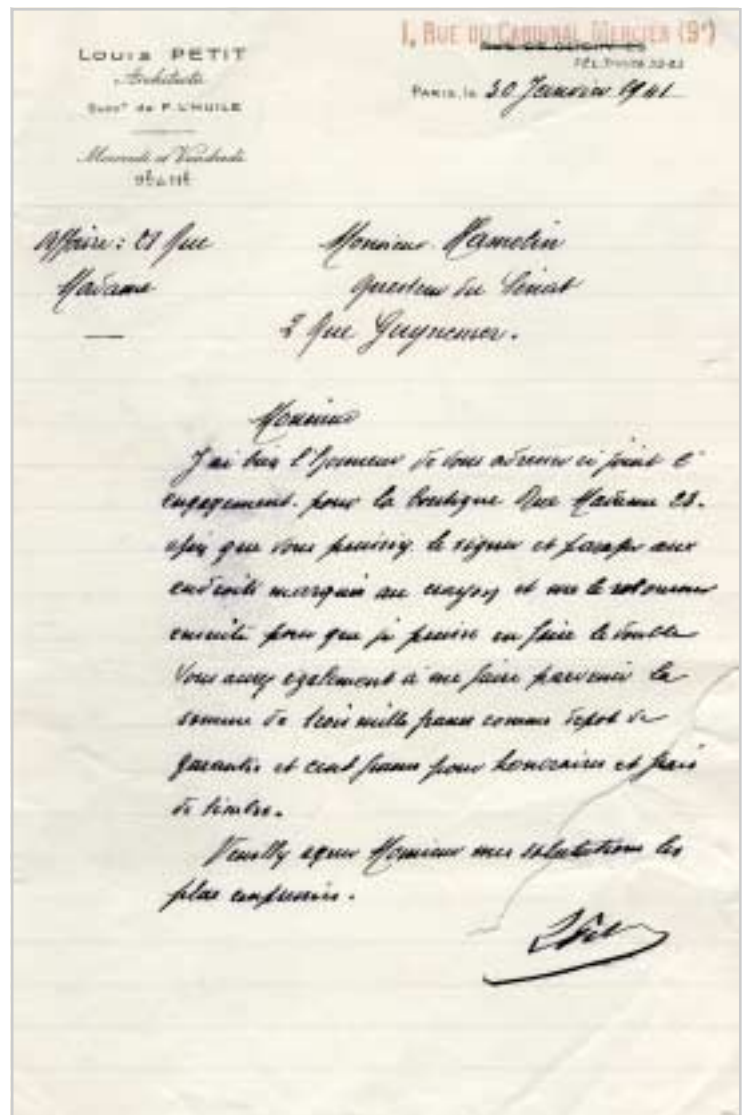 LOUIS PETIT
Architecte
Succr de P. L'HUILE
Mercredi et Vendredi
9h à 11h
1, RUE DU CARDINAL MERCIER (9e)
RUE DE CLICHY
TÉL. TRINITÉ
PARIS, le 30 Janvier 1941
Affaire : 28 Rue
Madame
Monsieur Hamelin
Questeur du Sénat
2 Rue Guynemer.
Monsieur
J'ai bien l'honneur de vous adresser ci joint l'
engagement pour la boutique Rue Madame 28.
afin que vous puissiez le signer et parapher aux
endroits marqués au crayon et me le retourner
ensuite pour que je puisse en faire le double
Vous aurez également à me faire parvenir la
somme de trois mille francs comme dépot de
garantie et cent francs pour honoraires et frais
de timbre.
Veuillez agréer Monsieur mes salutations les
plus empressées.